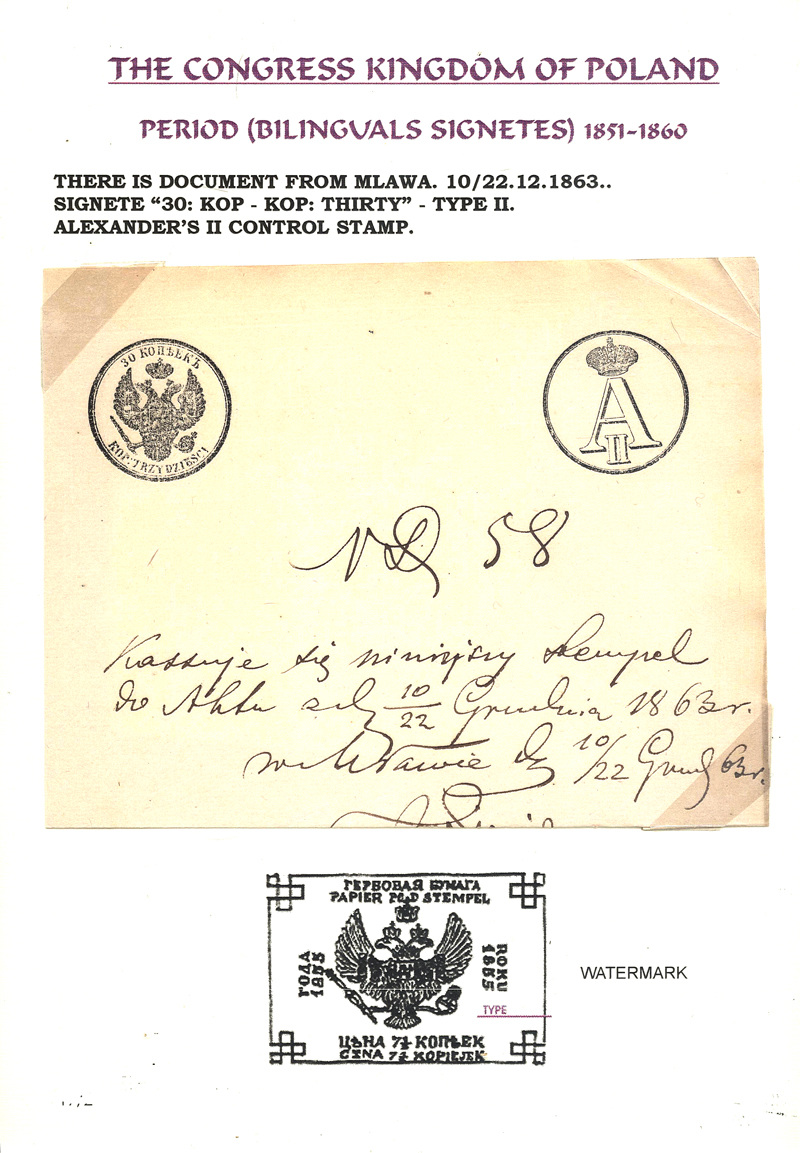 THE CONGRESS KINGDOM OF POLAND
PERIOD (BILINGUALS SIGNETES) 1851-1860
THERE IS DOCUMENT FROM MLAWA. 10/22.12.1863..
SIGNETE “30: KOP - KOP: THIRTY” - TYPE II.
ALEXANDER’S II CONTROL STAMP.
30 КОПѢЕКЪ
KOP: TRZYDZIESCI
A
II
58
Kassuje się niniejszy stempel
do Aktu z d. 10/22 Grudnia 1863 r.
w Mławie 10/22 Grud 63 r.
ГЕРБОВАЯ БУМАГА
PAPIER POD STEMPEL
ГОДА 1855
ROKU 1855
TYPE
ЦѢНА 7½ КОПѢЕК
CENA 7½ KOPIEJEK
WATERMARK